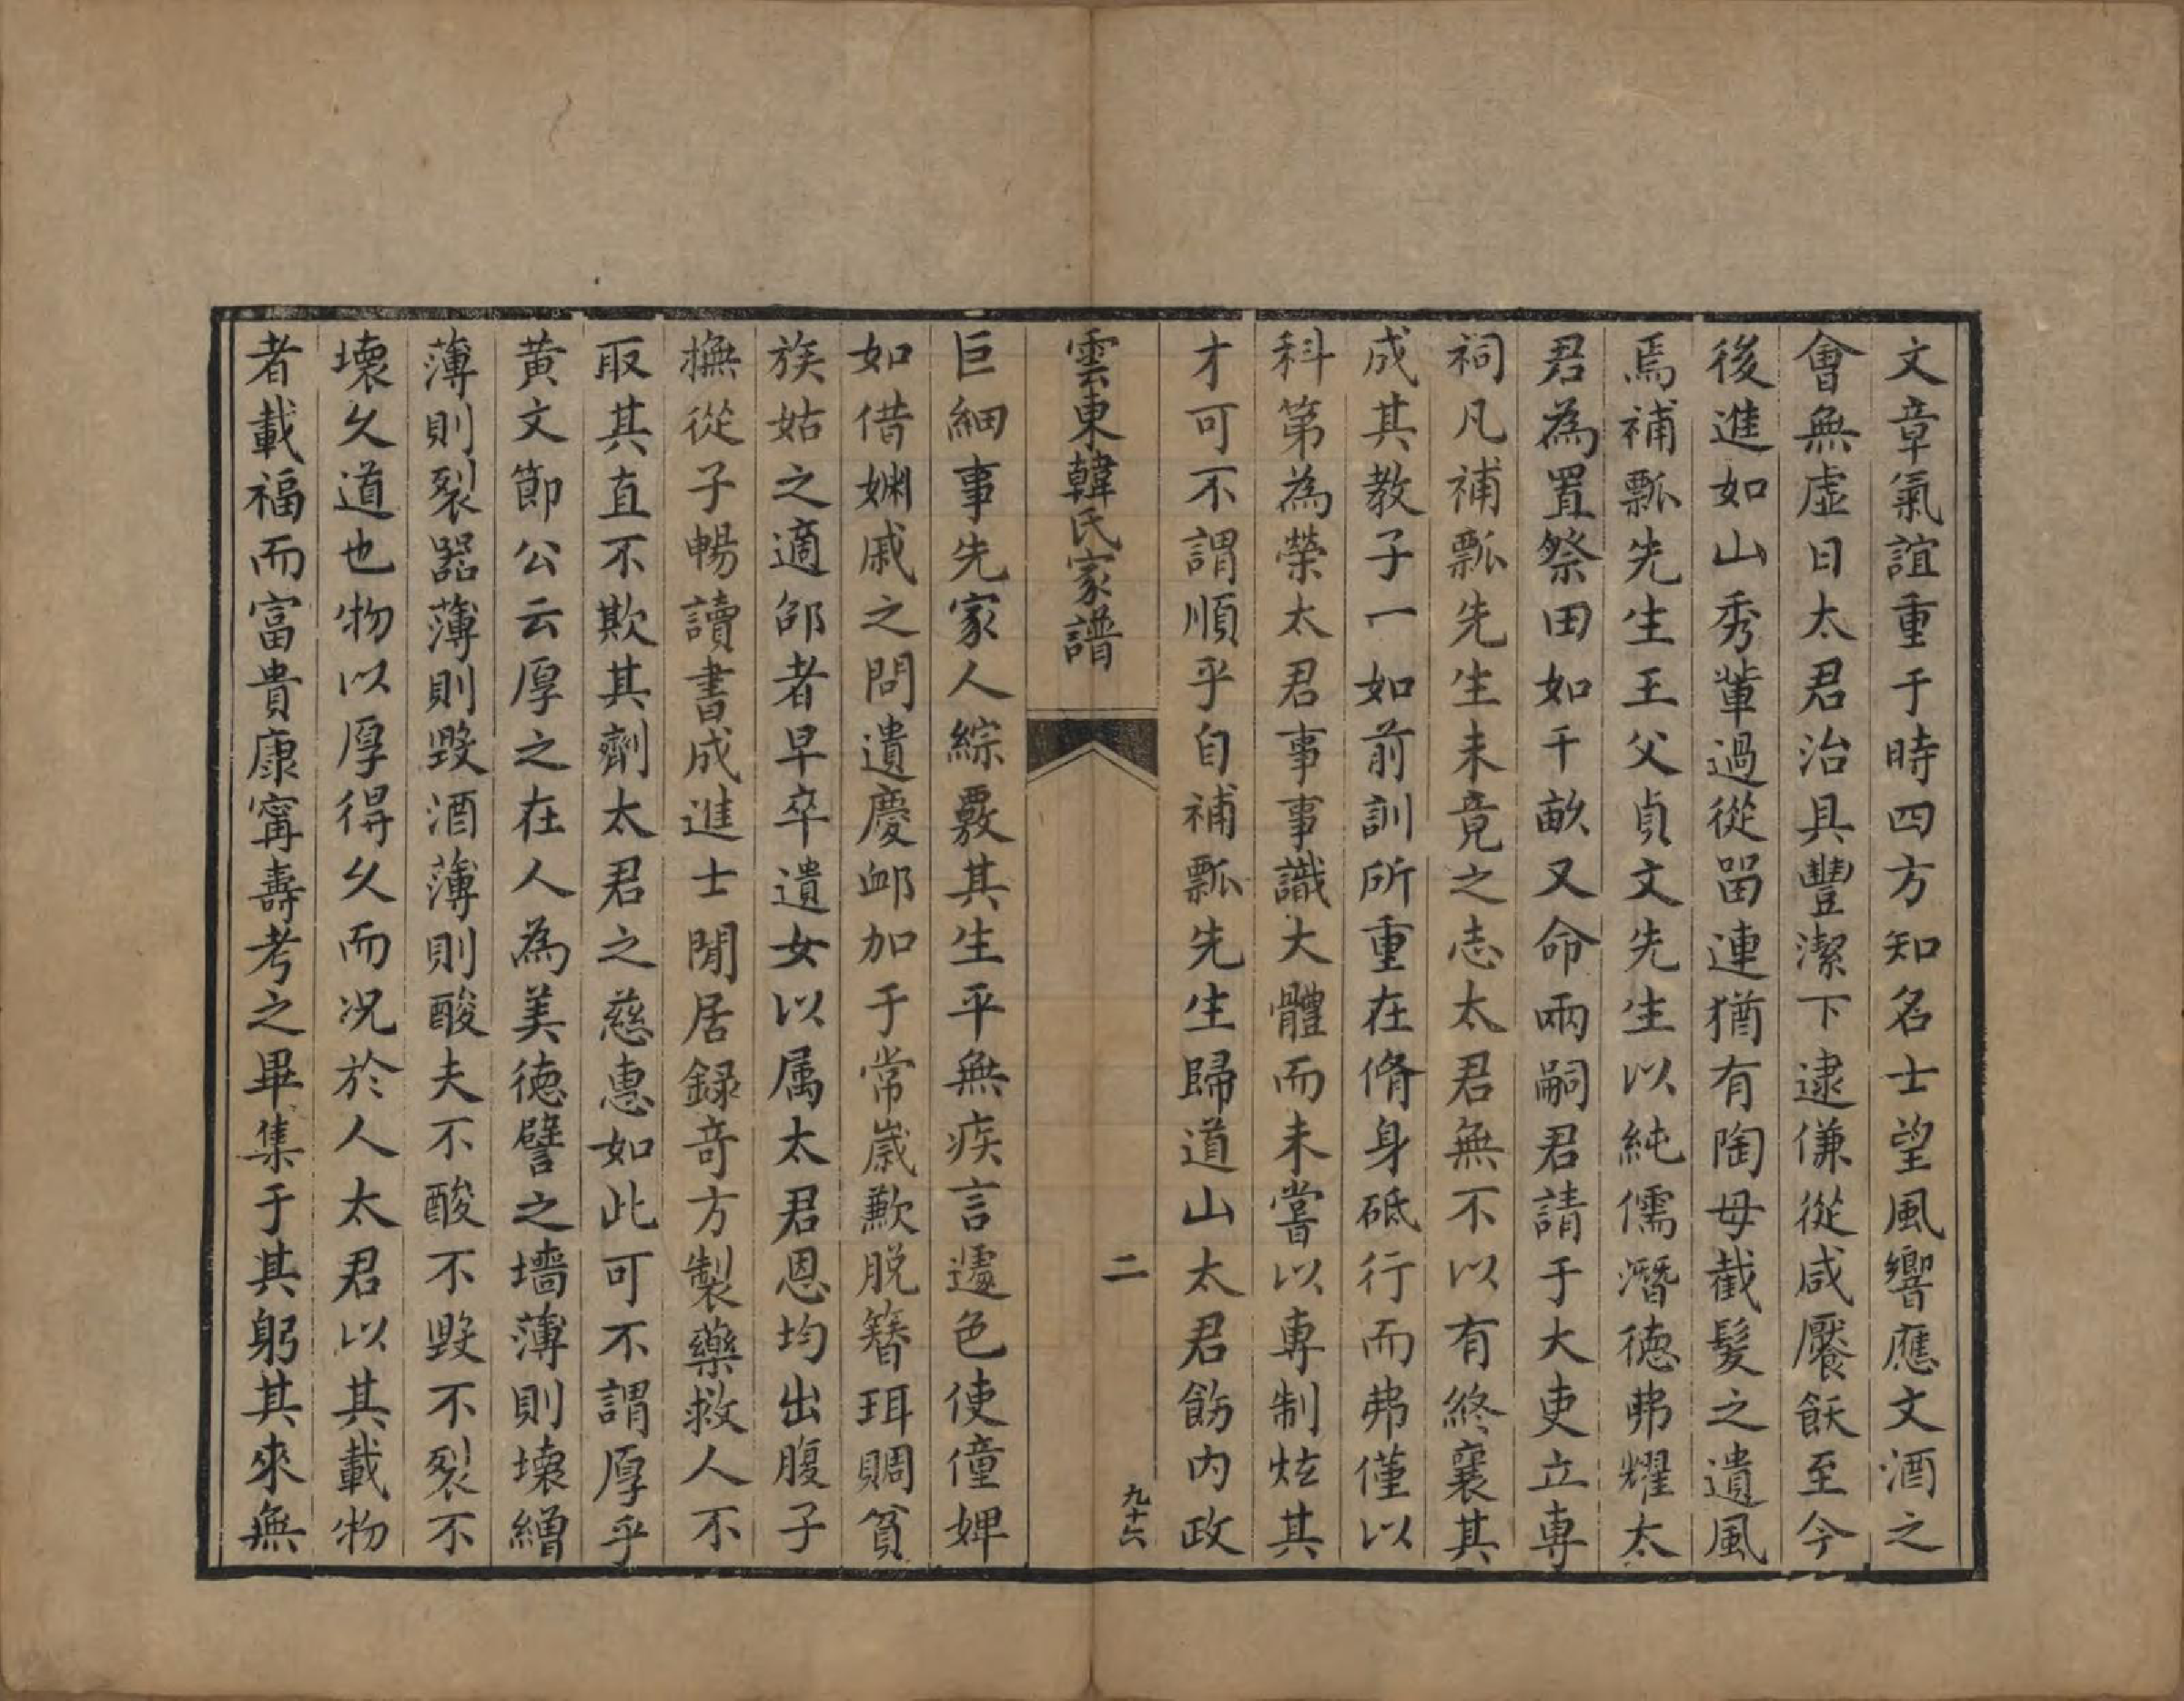 文章氣誼重于時四方知名士望風響應文酒之
會無虛日太君治具豐潔下逮傔從咸饜飫至今
後進如山秀輩過從留連猶有陶母截髮之遺風
焉補瓢先生王父貞文先生以純儒潛德弗耀太
君為置祭田如干畝又命兩嗣君請于大吏立專
祠凡補瓢先生未竟之志太君無不以有終襄其
成其教子一如前訓所重在脩身砥行而弗僅以
科第為榮太君事事識大體而未嘗以專制炫其
才可不謂順乎自補瓢先生歸道山太君飭內政
雲東韓氏家譜
二
九十六
巨細事先家人綜覈其生平無疾言遽色使僮婢
如借婣戚之問遺慶卹加于常歲歉脱簪珥賙貧
族姑之適邵者早卒遺女以属太君恩均出腹子
撫從子暢讀書成進士閒居録奇方製藥救人不
取其直不欺其劑太君之慈惠如此可不謂厚乎
黄文節公云厚之在人為美德譬之墻薄則壞繒
薄則裂器薄則毀酒薄則酸夫不酸不毀不裂不
壞久道也物以厚得久而况於人太君以其載物
者載福而富貴康寧壽考之畢集于其躬其來無